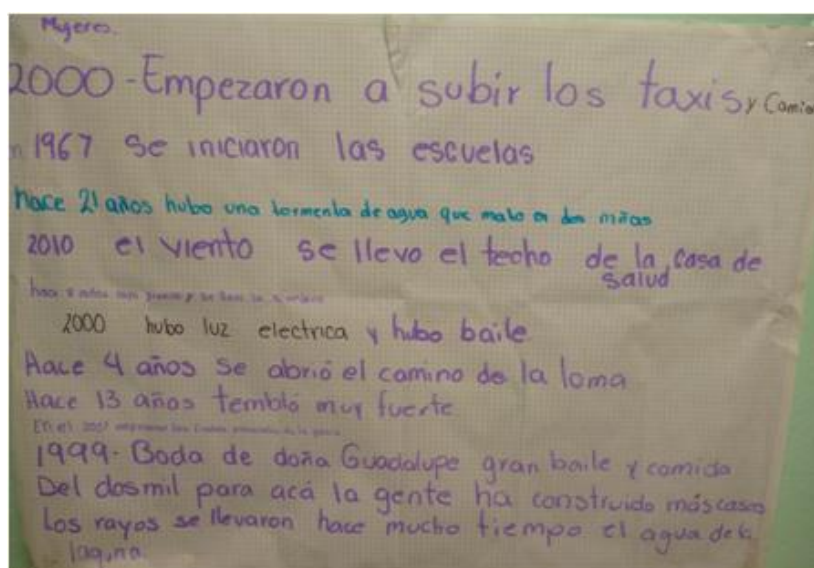 Mujeres.
2000 - Empezaron a subir los taxis y Camio
n 1967 se iniciaron las escuelas
hace 21 años hubo una tormenta de agua que mato a dos niñas
2010 el viento se llevo el techo de la casa de
salud
hace
2000 hubo luz electrica y hubo baile
Hace 4 años se abrió el camino de la loma
Hace 13 años tembló muy fuerte
En el
1999 - Boda de doña Guadalupe gran baile y comida
Del dosmil para acá la gente ha construido más casas
Los rayos se llevaron hace mucho tiempo el agua de la
laguna.